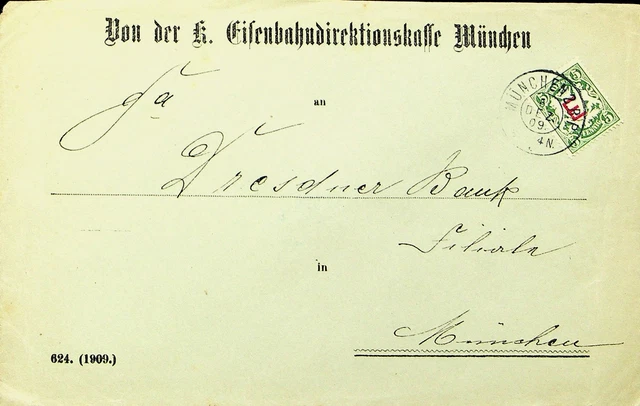 Von der K. Eisenbahndirektionskasse München
Fa
an
Dresdner Bank
Filiale
in
München
624. (1909.)
MÜNCHEN
DEZ.
09.
4 N.
5
5